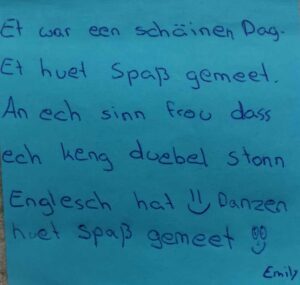 Et war een schäinen Dag.
Et huet Spaß gemeet.
An ech sinn frou dass
ech keng duebel stonn
Englesch hat Danzen
huet Spaß gemeet
Emily